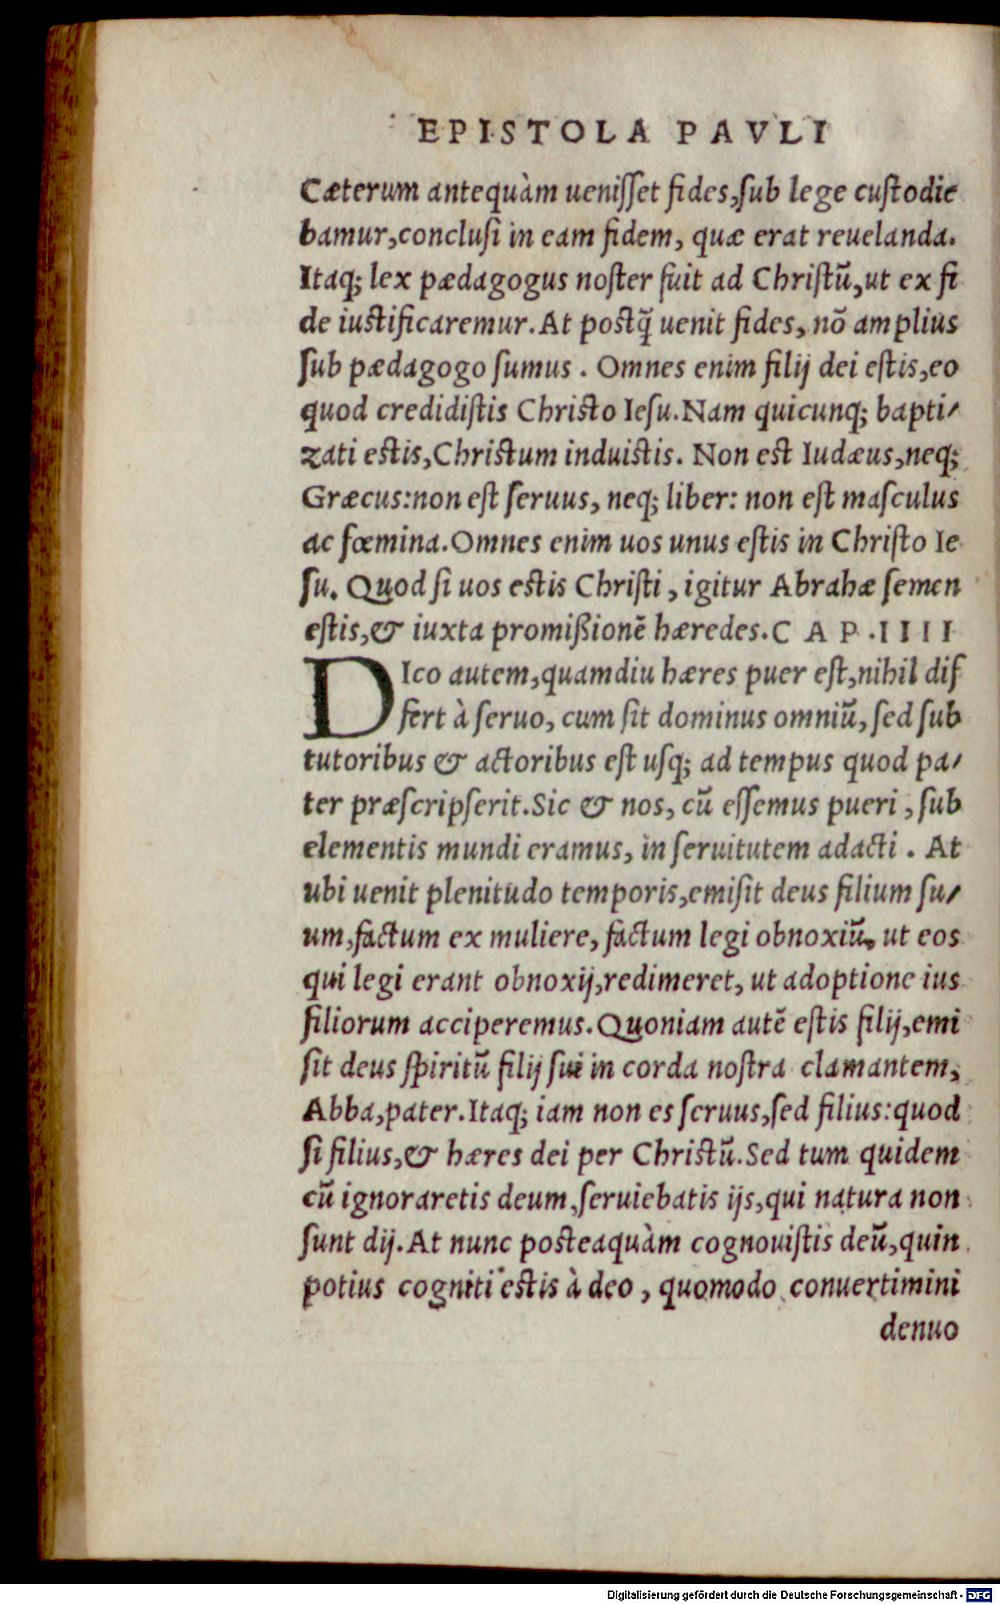 EPISTOLA PAVLI
Cæterum antequàm ueniſſet fides,ſub lege cuſtodie
bamur,concluſi in eam fidem, quæ erat reuelanda.
Itaq; lex pædagogus noſter fuit ad Chriſtũ,ut ex fi
de iuſtificaremur.At poſtq̃ uenit fides, nõ amplius
ſub pædagogo ſumus . Omnes enim filij dei eſtis,eo
quod credidiſtis Chriſto Ieſu.Nam quicunq; bapti/
zati eſtis,Chriſtum induiſtis. Non eſt Iudæus,neq;
Græcus:non eſt ſeruus, neq; liber: non eſt maſculus
ac fœmina.Omnes enim uos unus eſtis in Chriſto Ie
ſu. Quod ſi uos eſtis Chriſti , igitur Abrahæ ſemen
eſtis,& iuxta promißionẽ hæredes.C A P .I I I I
DIco autem,quamdiu hæres puer eſt,nihil dif
fert à ſeruo, cum ſit dominus omniũ, ſed ſub
tutoribus & actoribus eſt uſq; ad tempus quod pa/
ter præſcripſerit.Sic & nos, cũ eſſemus pueri , ſub
elementis mundi eramus, in ſeruitutem adacti . At
ubi uenit plenitudo temporis,emiſit deus filium ſu/
um,factum ex muliere, factum legi obnoxiũ, ut eos
qui legi erant obnoxij,redimeret, ut adoptione ius
filiorum acciperemus.Quoniam autẽ eſtis filij,emi
ſit deus ſpiritũ filij ſui in corda noſtra clamantem,
Abba,pater.Itaq; iam non es ſeruus,ſed filius:quod
ſi filius,& hæres dei per Chriſtũ.Sed tum quidem
cũ ignoraretis deum,ſeruiebatis ijs,qui natura non
ſunt dij.At nunc poſteaquàm cognouiſtis deũ,quin
potius cogniti eſtis à deo , quomodo conuertimini
denuo
Digitalisierung gefördert durch die Deutsche Forschungsgemeinschaft - DFG